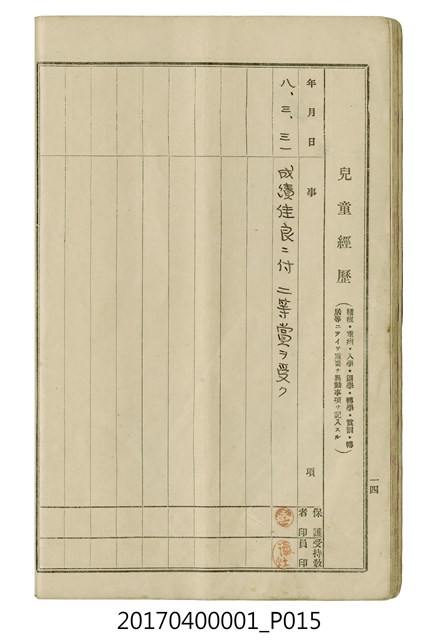 一四
兒童經歷
（種痘・重病・入學・退學・轉學・賞罰・轉
居等ニツイテ重要ナ異動事項ヲ記入スル）
年月日
事項
保護者印
受持教員印
八、三、三一
成績佳良ニ付二等賞ヲ受ク
20170400001_P015